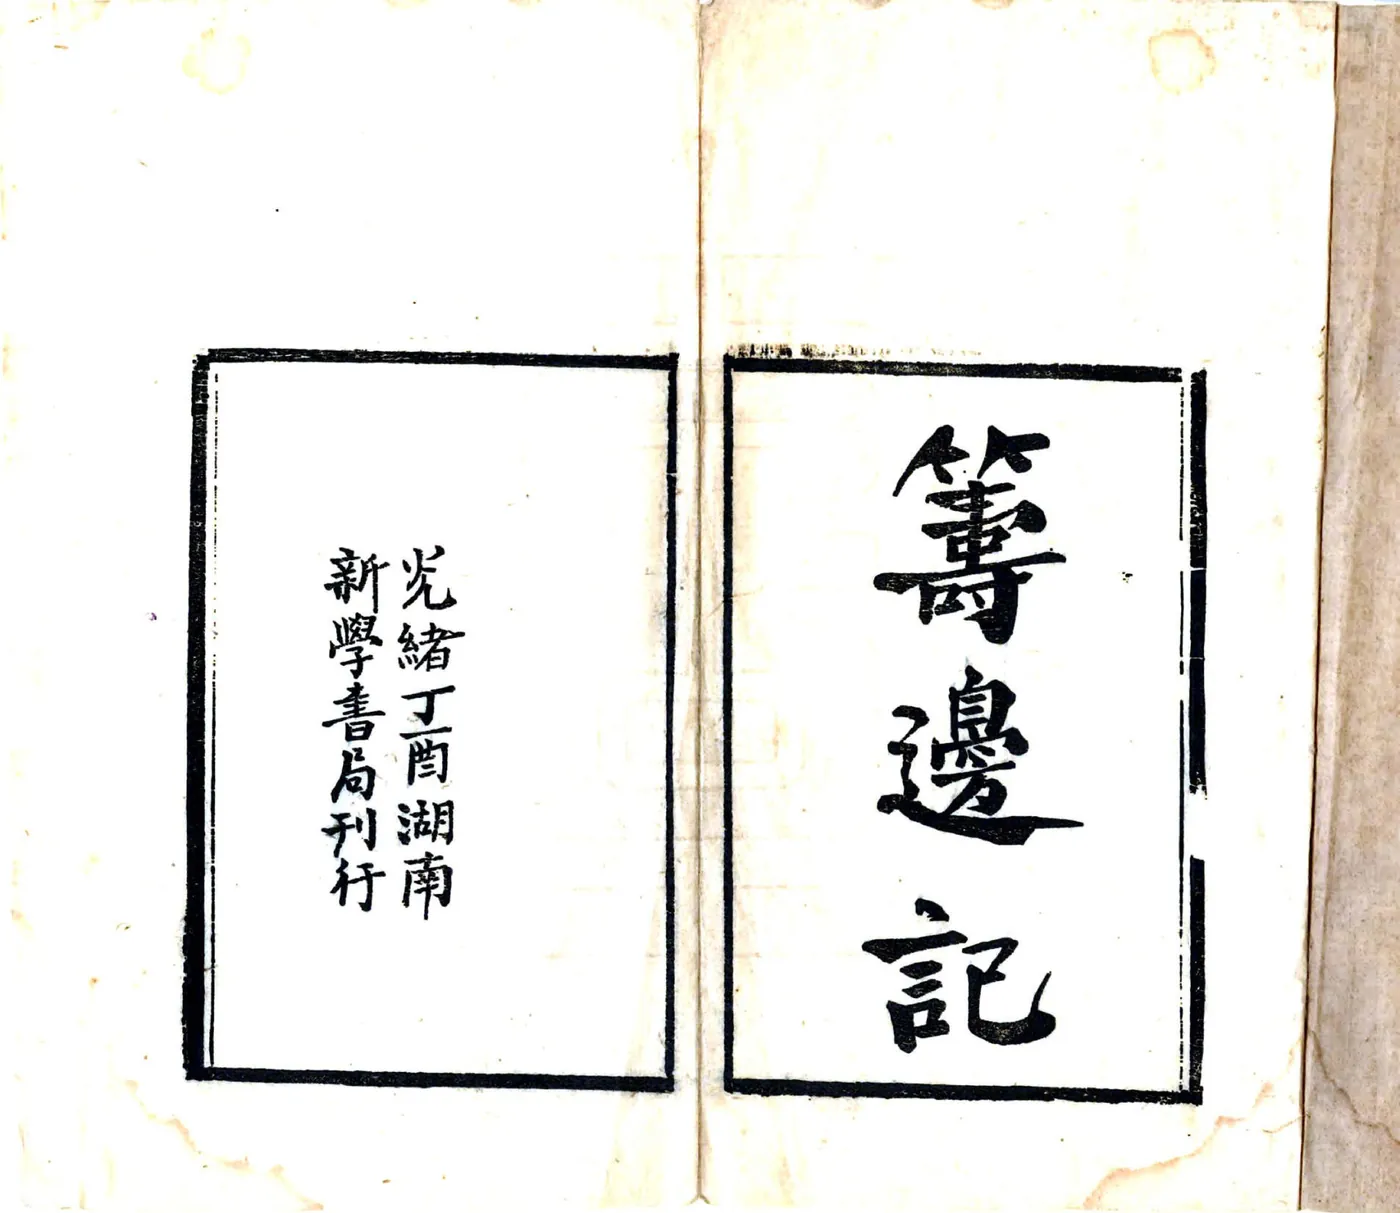 籌邊記
光緒丁酉湖南
新學書局刊行